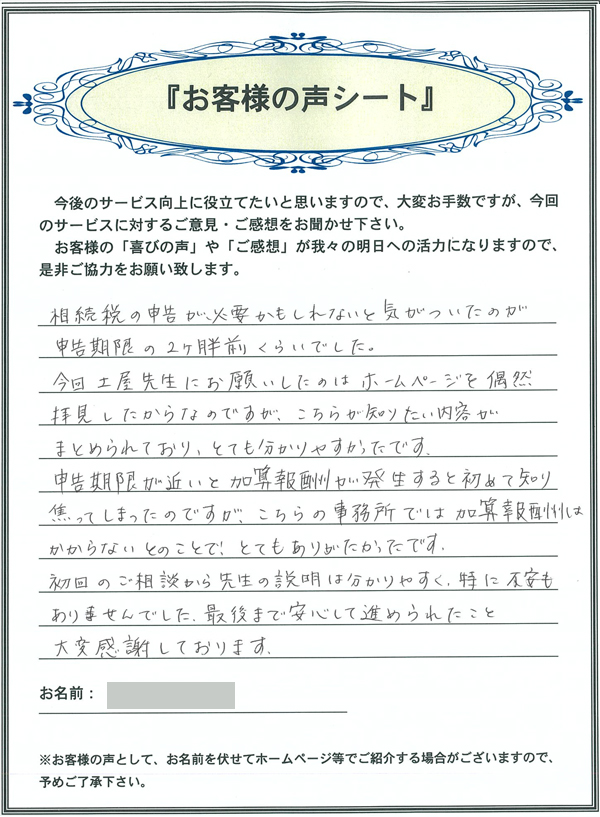 『お客様の声シート』
今後のサービス向上に役立てたいと思いますので、大変お手数ですが、今回
のサービスに対するご意見・ご感想をお聞かせ下さい。
お客様の「喜びの声」や「ご感想」が我々の明日への活力になりますので、
是非ご協力をお願い致します。
相続税の申告が必要かもしれないと気がついたのが
申告期限の2ヶ月半前くらいでした。
今回土屋先生にお願いしたのはホームページを偶然
拝見したからなのですが、こちらが知りたい内容が
まとめられており、とても分かりやすかったです。
申告期限が近いと加算報酬が発生すると初めて知り
焦ってしまったのですが、こちらの事務所では加算報酬は
かからないとのことで、とてもありがたかったです。
初回のご相談から先生の説明は分かりやすく、特に不安も
ありませんでした。最後まで安心して進められたこと
大変感謝しております。
お名前：
※お客様の声として、お名前を伏せてホームページ等でご紹介する場合がございますので、
予めご了承下さい。